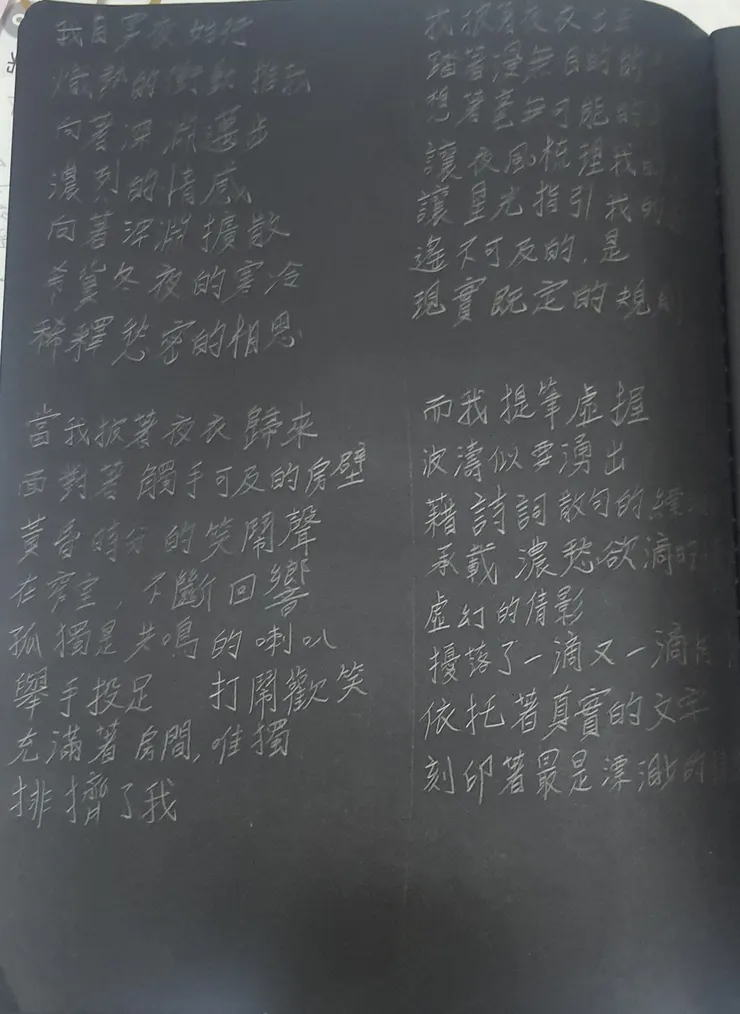 我自
熾熱的衝動推我
向著深淵邁步
濃烈的情感
向著深淵擴散
希冀冬夜的寒冷
稀釋愁密的相思
當我披著夜衣歸來
面對著觸手可及的房壁
黃昏時分的笑鬧聲
在窄室，不斷回響
孤獨是共鳴的喇叭
舉手投足 打鬧歡笑
充滿著房間，唯獨
排擠了我
我披著夜衣
踏著漫無目的的
想著毫無可能的
讓夜風梳理我的
讓星光指引我的
遙不可及的，是
現實既定的規則
而我提筆虛握
波濤似要湧出
藉詩詞散句的
承載濃愁欲滴的
虛幻的倩影
擾落了一滴又一滴
依托著真實的文字
刻印著最是漂渺的